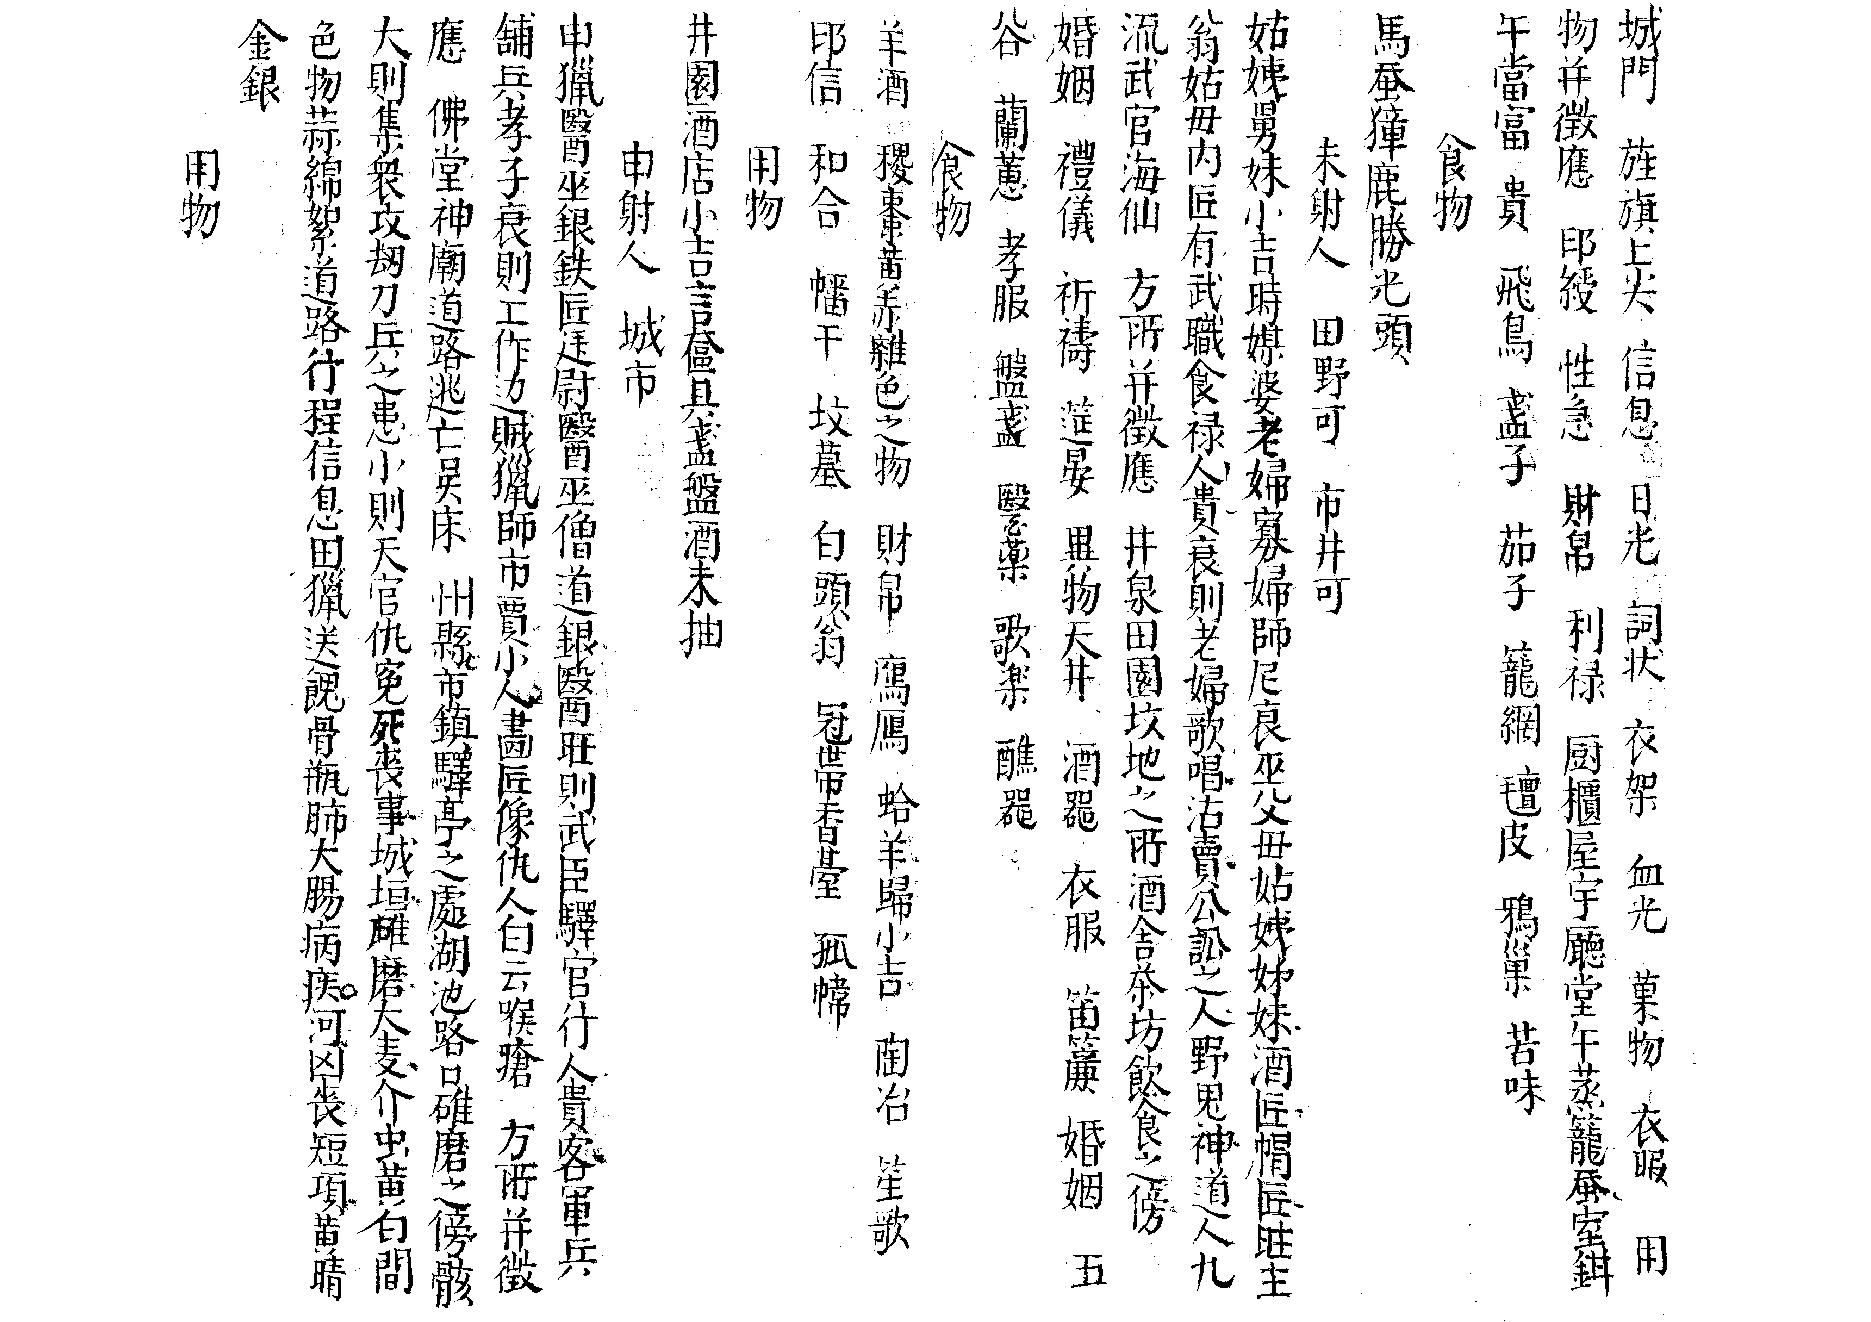 城門 旌旗上尖 信息 日光 詞状 衣架 血光 菓物 衣服 用
物并徵應 印綬 性急 財帛 利禄 厨櫃屋宇廳堂午蒸籠蚕室鉺
午當富 貴 飛鳥 盞子 茄子 籠網 氊皮 鴉巢 苦味
食物
馬蚕獐鹿勝光頭
未射人 田野可 市井可
姑姨舅妹小吉時媒婆老婦寡婦師尼哀巫父毋姑姨姊妹酒匠帽匠旺主
翁姑毋内匠有武職食禄人貴衰則老婦歌唱沽賣公訟之人野鬼神道人九
流武官海仙 方所并徵應 井泉田園坟地之所酒舍茶坊飲食之傍
婚姻 禮儀 祈禱 筵晏 異物天井 酒噐 衣服 笛簾 婚姻 五
谷 蘭蕙 孝服 盤盞 醫藥 歌楽 醮噐
食物
羊酒 稷棗黄羔雜色之物 財帛 鴈鴈 蛤羊歸小吉 陶冶 笙歌
印信 和合 幡干 坟墓 白頭翁 冠带香臺 孤幃
用物
井園酒店小吉言簠具盞盤酒未抽
申射人 城市
申獵醫巫銀鉄匠廷尉醫巫僧道銀醫旺則武臣驛官行人貴客軍兵
舖兵孝子衰則工作边賊獵師市賈小人畵匠像仇人白云喉瘡 方所并徵
應 佛堂神廟道路逃亡吳床 州縣市鎮驛亭之處湖池路口碓磨之傍骸
大則集衆攻刼刀兵之患小則天官仇寃死丧事城垣碓磨大麦介虫黄白間
色物蒜綿絮道路行程信息田獵送餽骨瓶肺大腸病疾河凶丧短項黄晴
金銀
用物